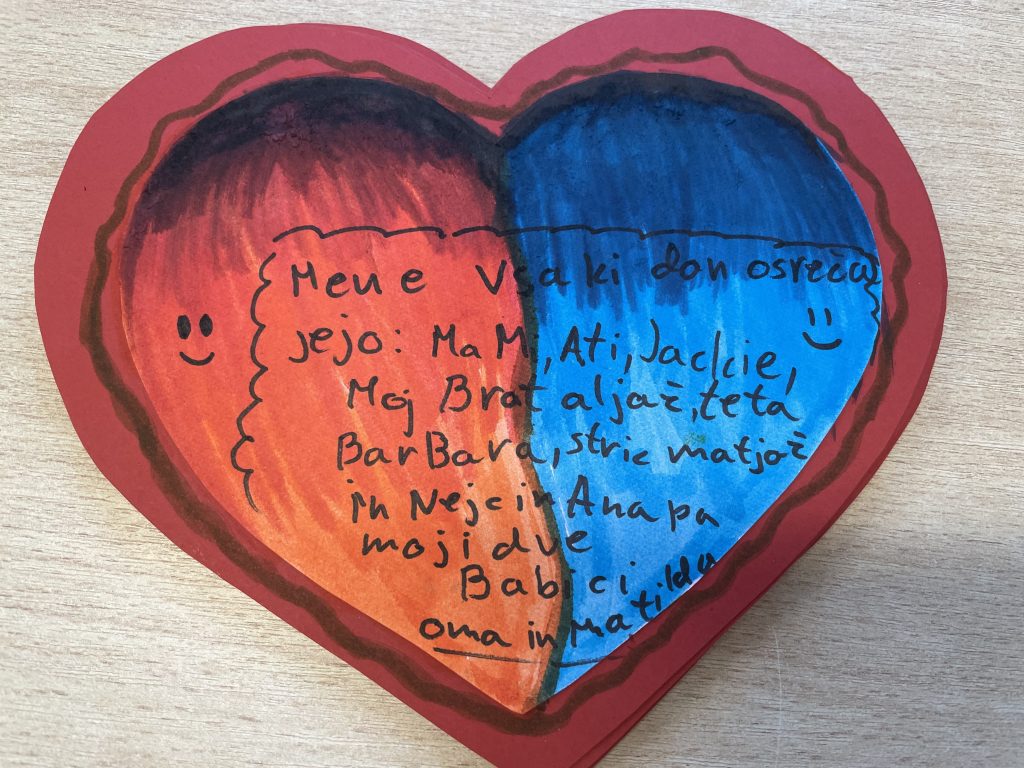 Mene vsaki dan osreču
jejo: MaMi, Ati, Jackie,
Moj Brat aljaž, teta
BarBara, stric matjaž
in Nejc in Ana pa
moji dve
Babici
oma in Matilda